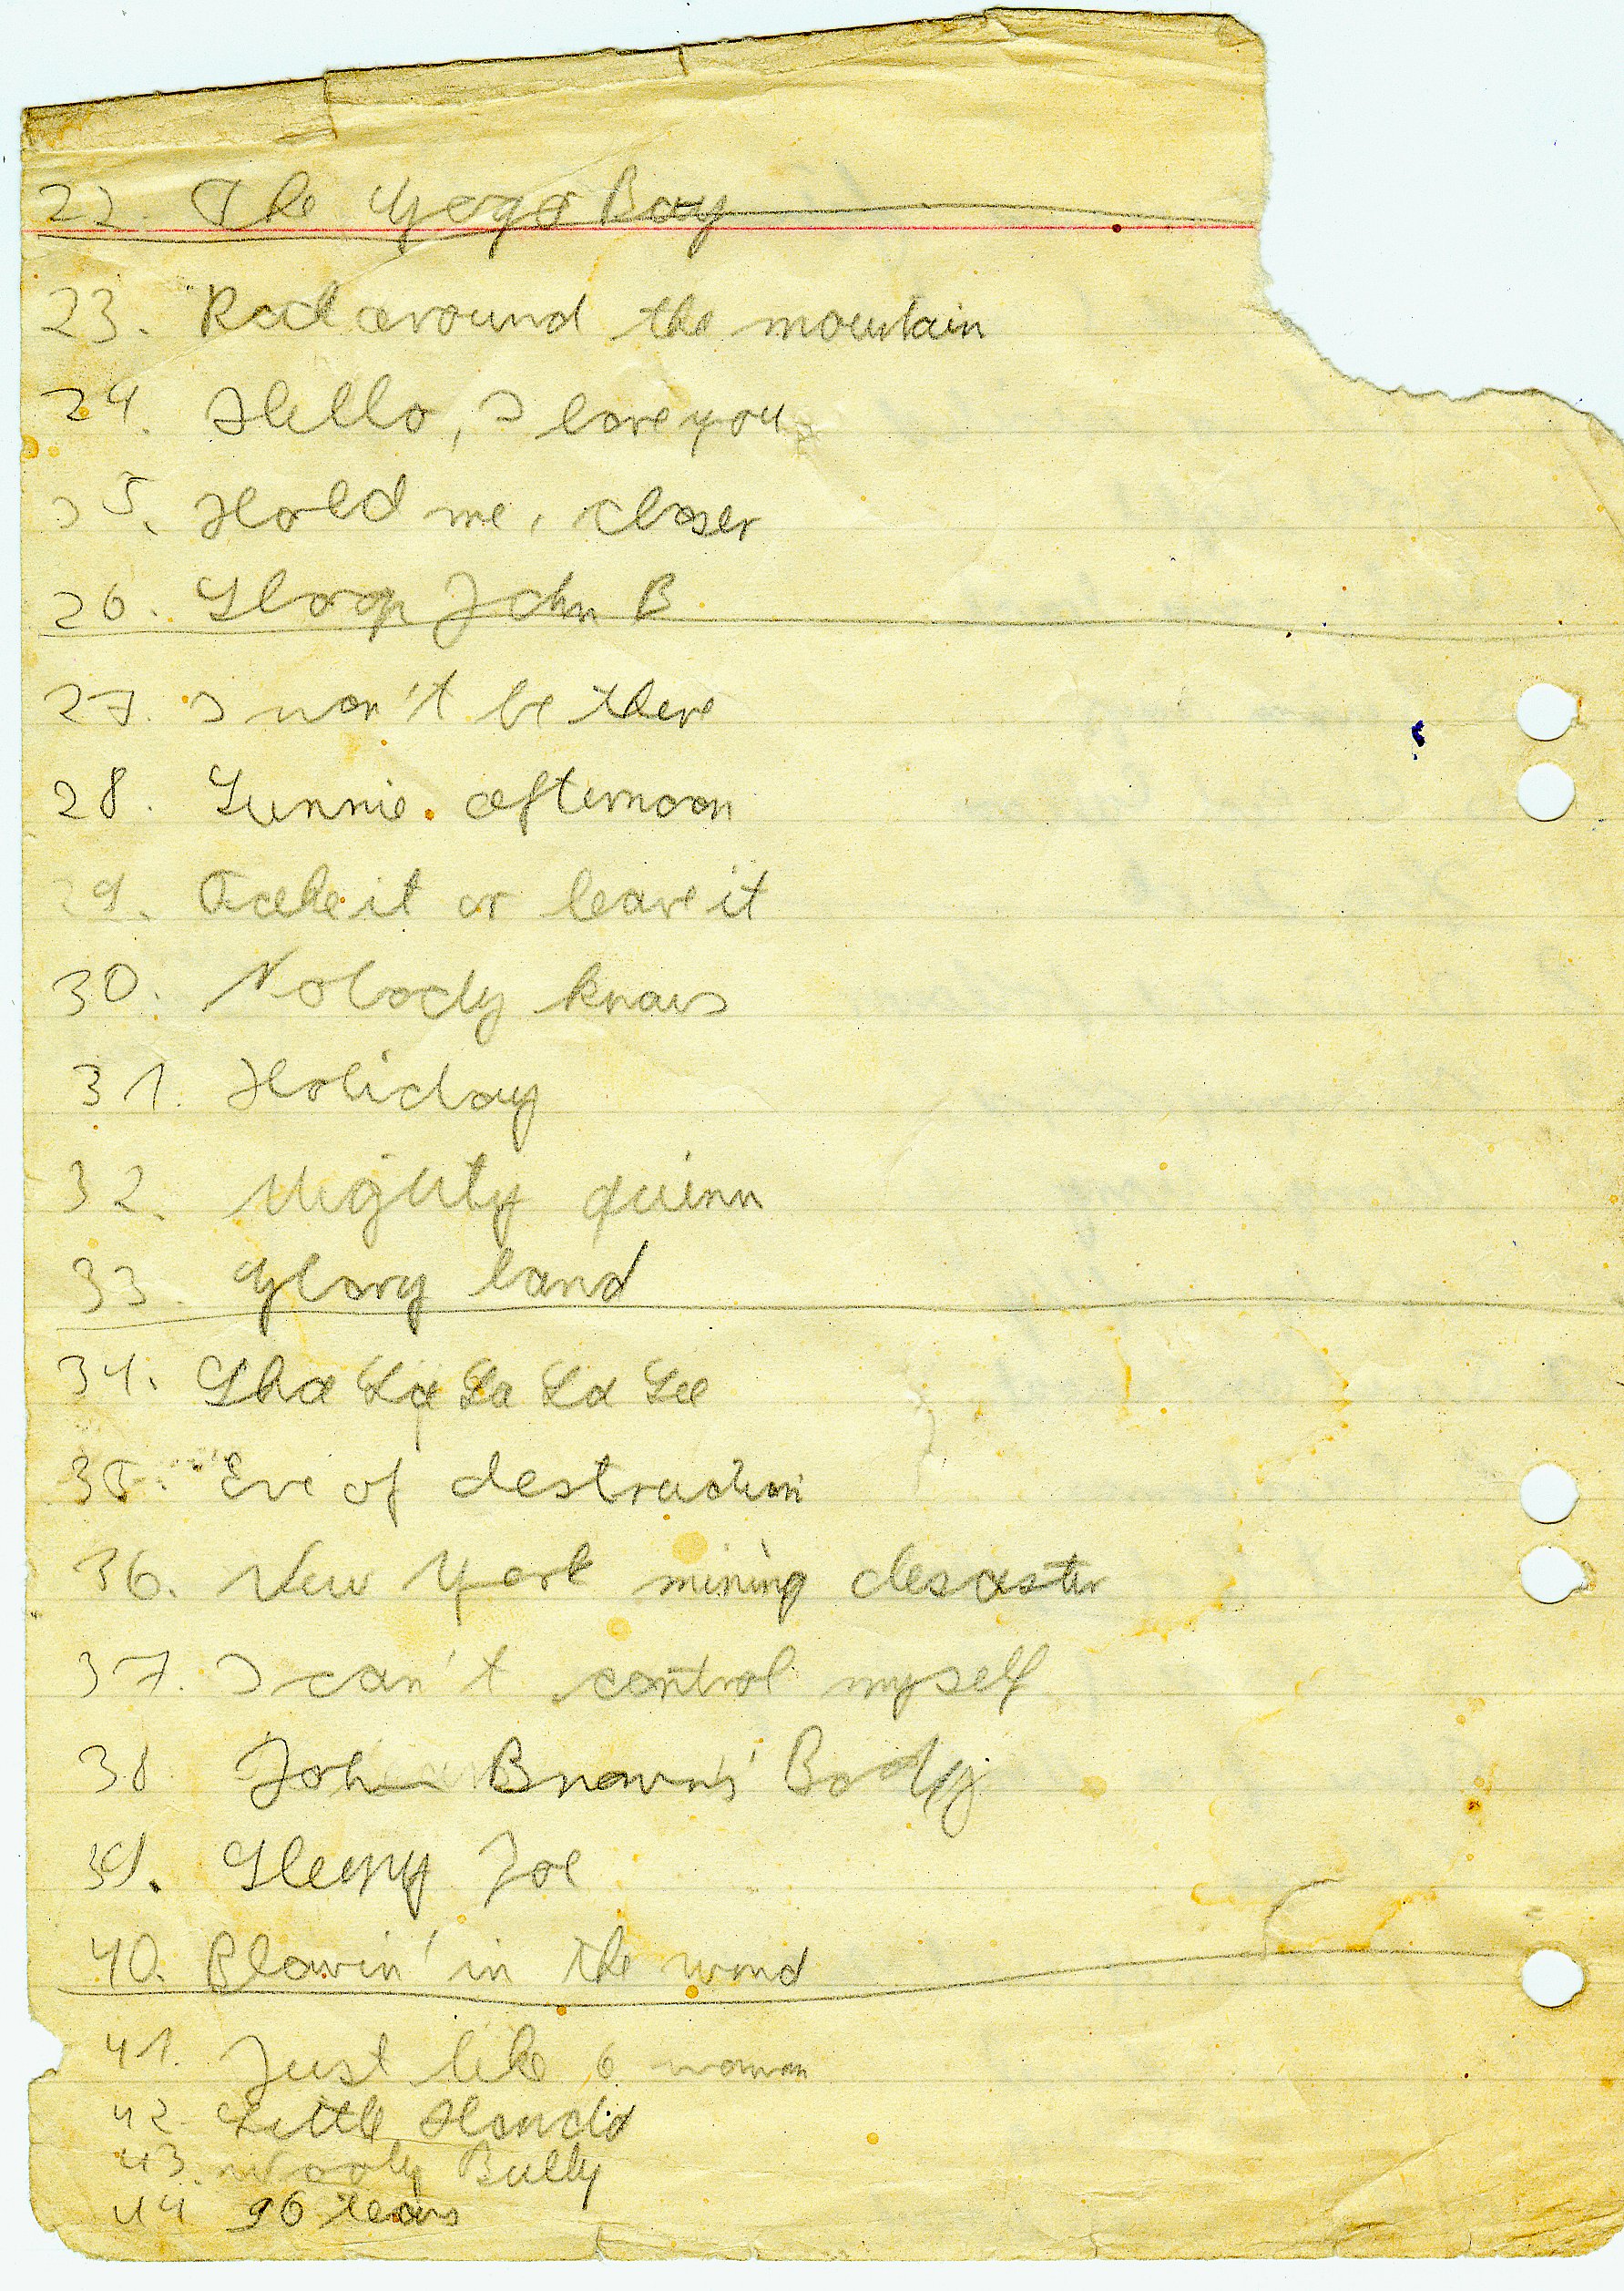 22. The Yoga Boy
23. Rock around the mountain
24. Hello, I love you
25. Hold me, closer
26. Sloop John B
27. I won't be there
28. Sunnie afternoon
29. Take it or leave it
30. Nobody knows
31. Holiday
32. Mighty quinn
33. Glory land
34. Sha La La La Lee
35. Eve of destruction
36. New York mining desaster
37. I can't control myself
38 John Brown's Body
39. Sleepy Joe
40. Blowin' in the wind
41. Just like a woman
42. Little Honda
43. Wooly Bully
44 96 tears